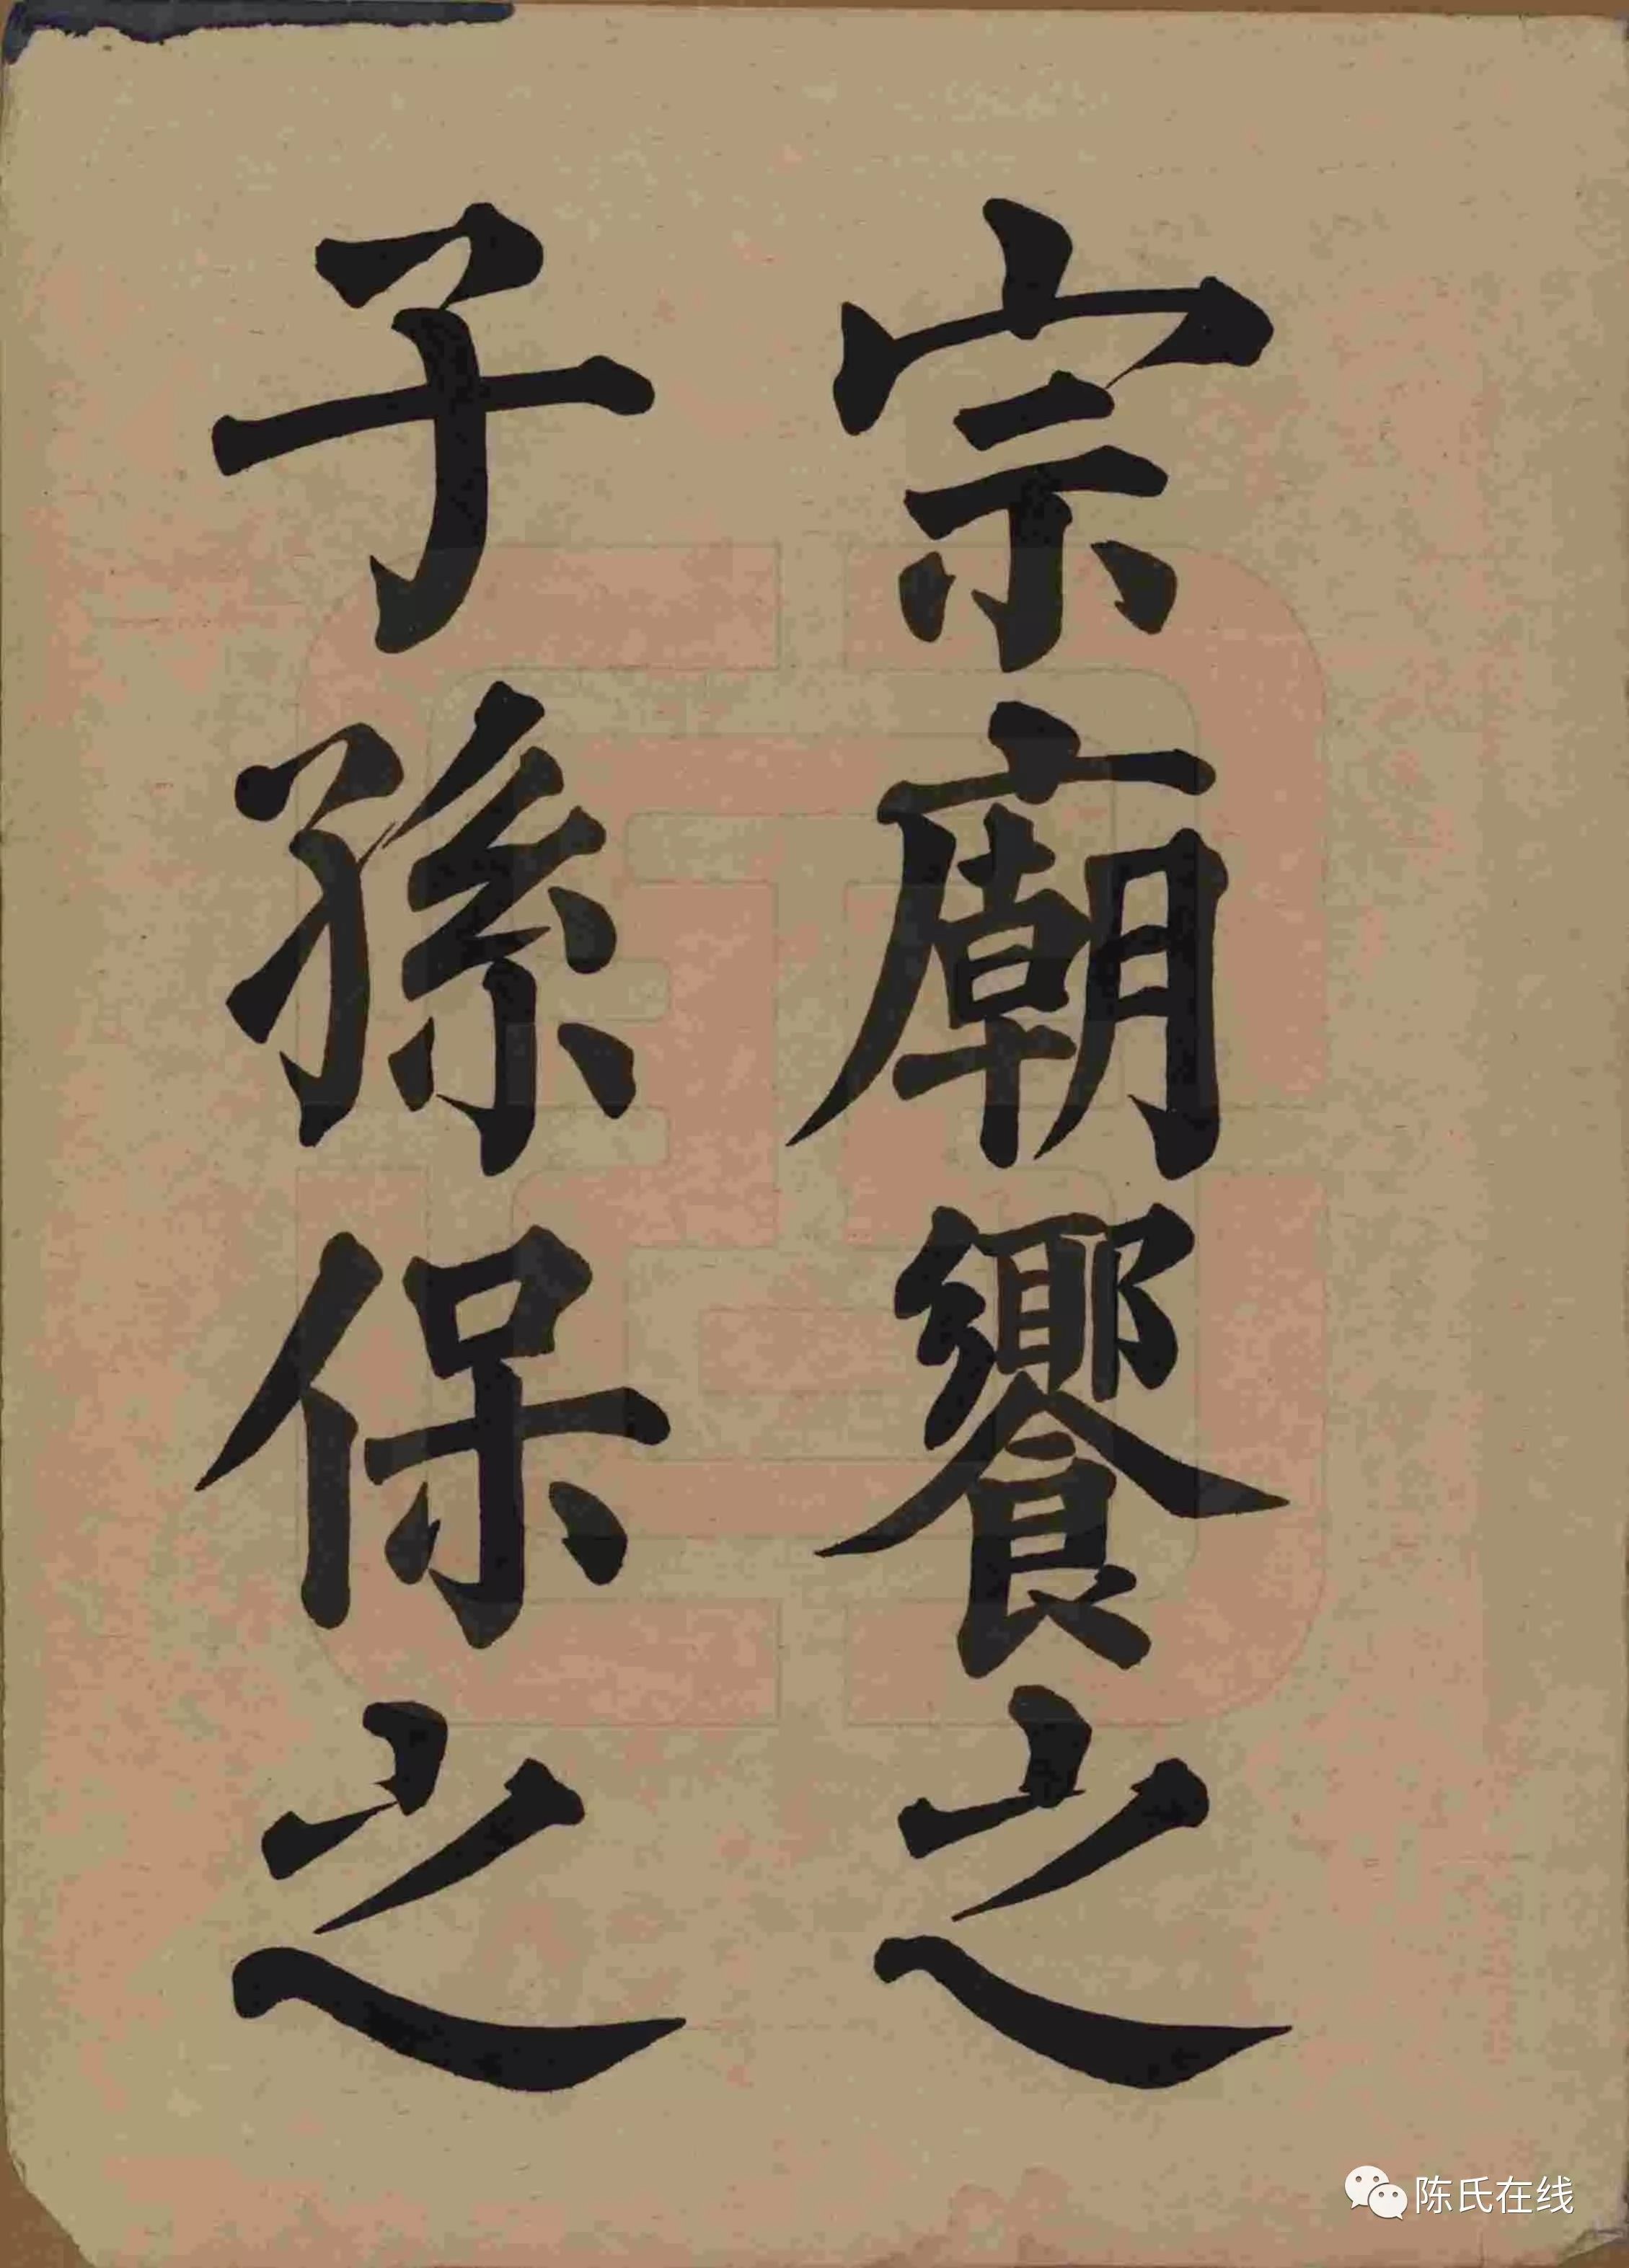 宗廟饗之
子孫保之
陈氏在线